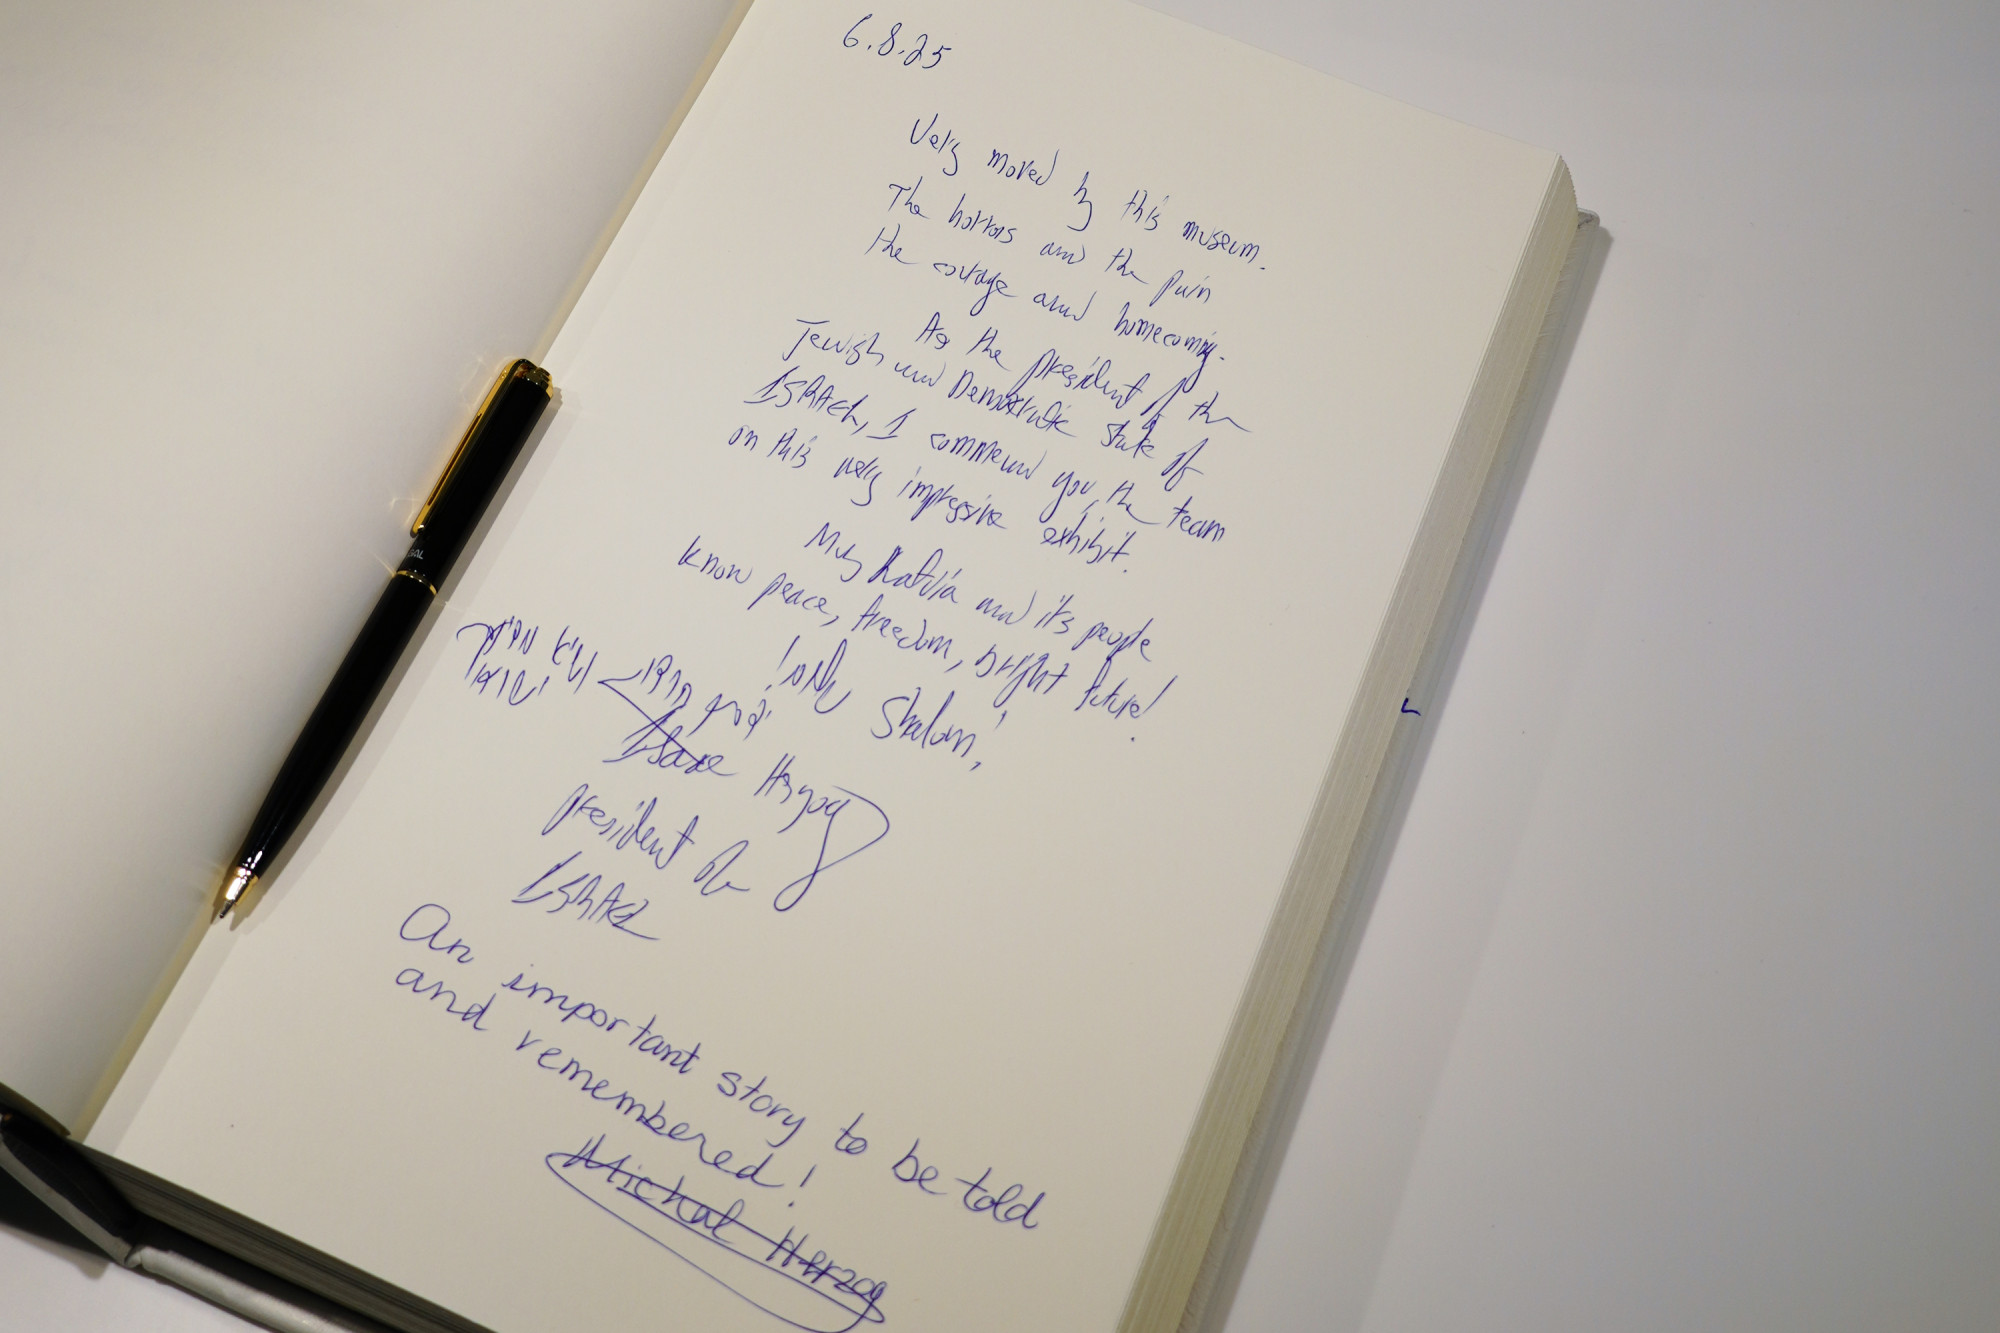 6.8.25
Very moved by this museum.
The horrors and the pain
the courage and homecoming.
As the president of the
Jewish and Democratic state of
ISRAEL, I commend you, the team
on this very impressive exhibit.
May Latvia and its people
know peace, freedom, bright future!
שלום! Shalom!,
יצחק הרצוג
Isaac Herzog
president of
ISRAEL
An important story to be told
and remembered!
Michal Herzog